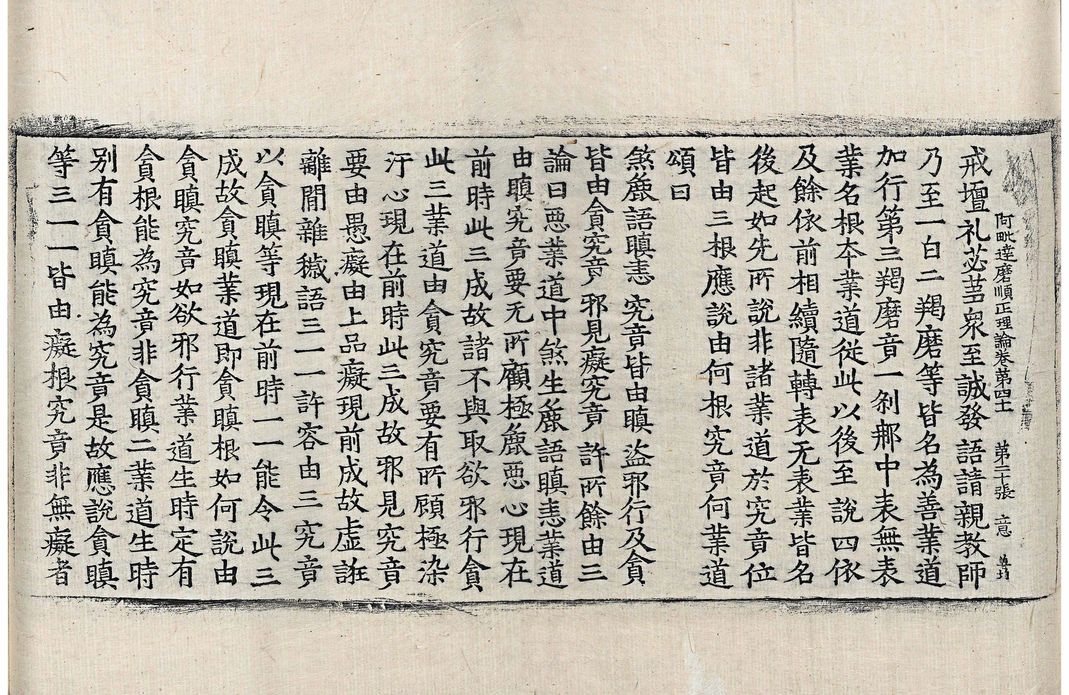 阿毗達磨順正理論卷第四十一 第二十張 意
戒壇礼苾芻衆至誠發語請親教師
乃至一白二羯磨等皆名為善業道
加行第三羯磨竟一剎那中表無表
業名根夲業道從此以後至說四依
及餘依前相續隨轉表无表業皆名
後起如先所說非諸業道於究竟位
皆由三根應說由何根究竟何業道
頌曰
煞麁語瞋恚 究竟皆由瞋 盜邪行及貪
皆由貪究竟 邪見癡究竟 許所餘由三
論曰惡業道中煞生麁語瞋恚業道
由瞋究竟要无所顧極麁惡心現在
前時此三成故諸不與取欲邪行貪
此三業道由貪究竟要有所顧極染
汙心現在前時此三成故邪見究竟
要由愚癡由上品癡現前成故虛誑
離間雜穢語三一一許容由三究竟
以貪瞋等現在前時一一能令此三
成故貪瞋業道即貪瞋根如何說由
貪瞋究竟如欲邪行業道生時定有
貪根能為究竟非貪瞋二業道生時
別有貪瞋能為究竟是故應說貪瞋
等三一一皆由癡根究竟非無癡者